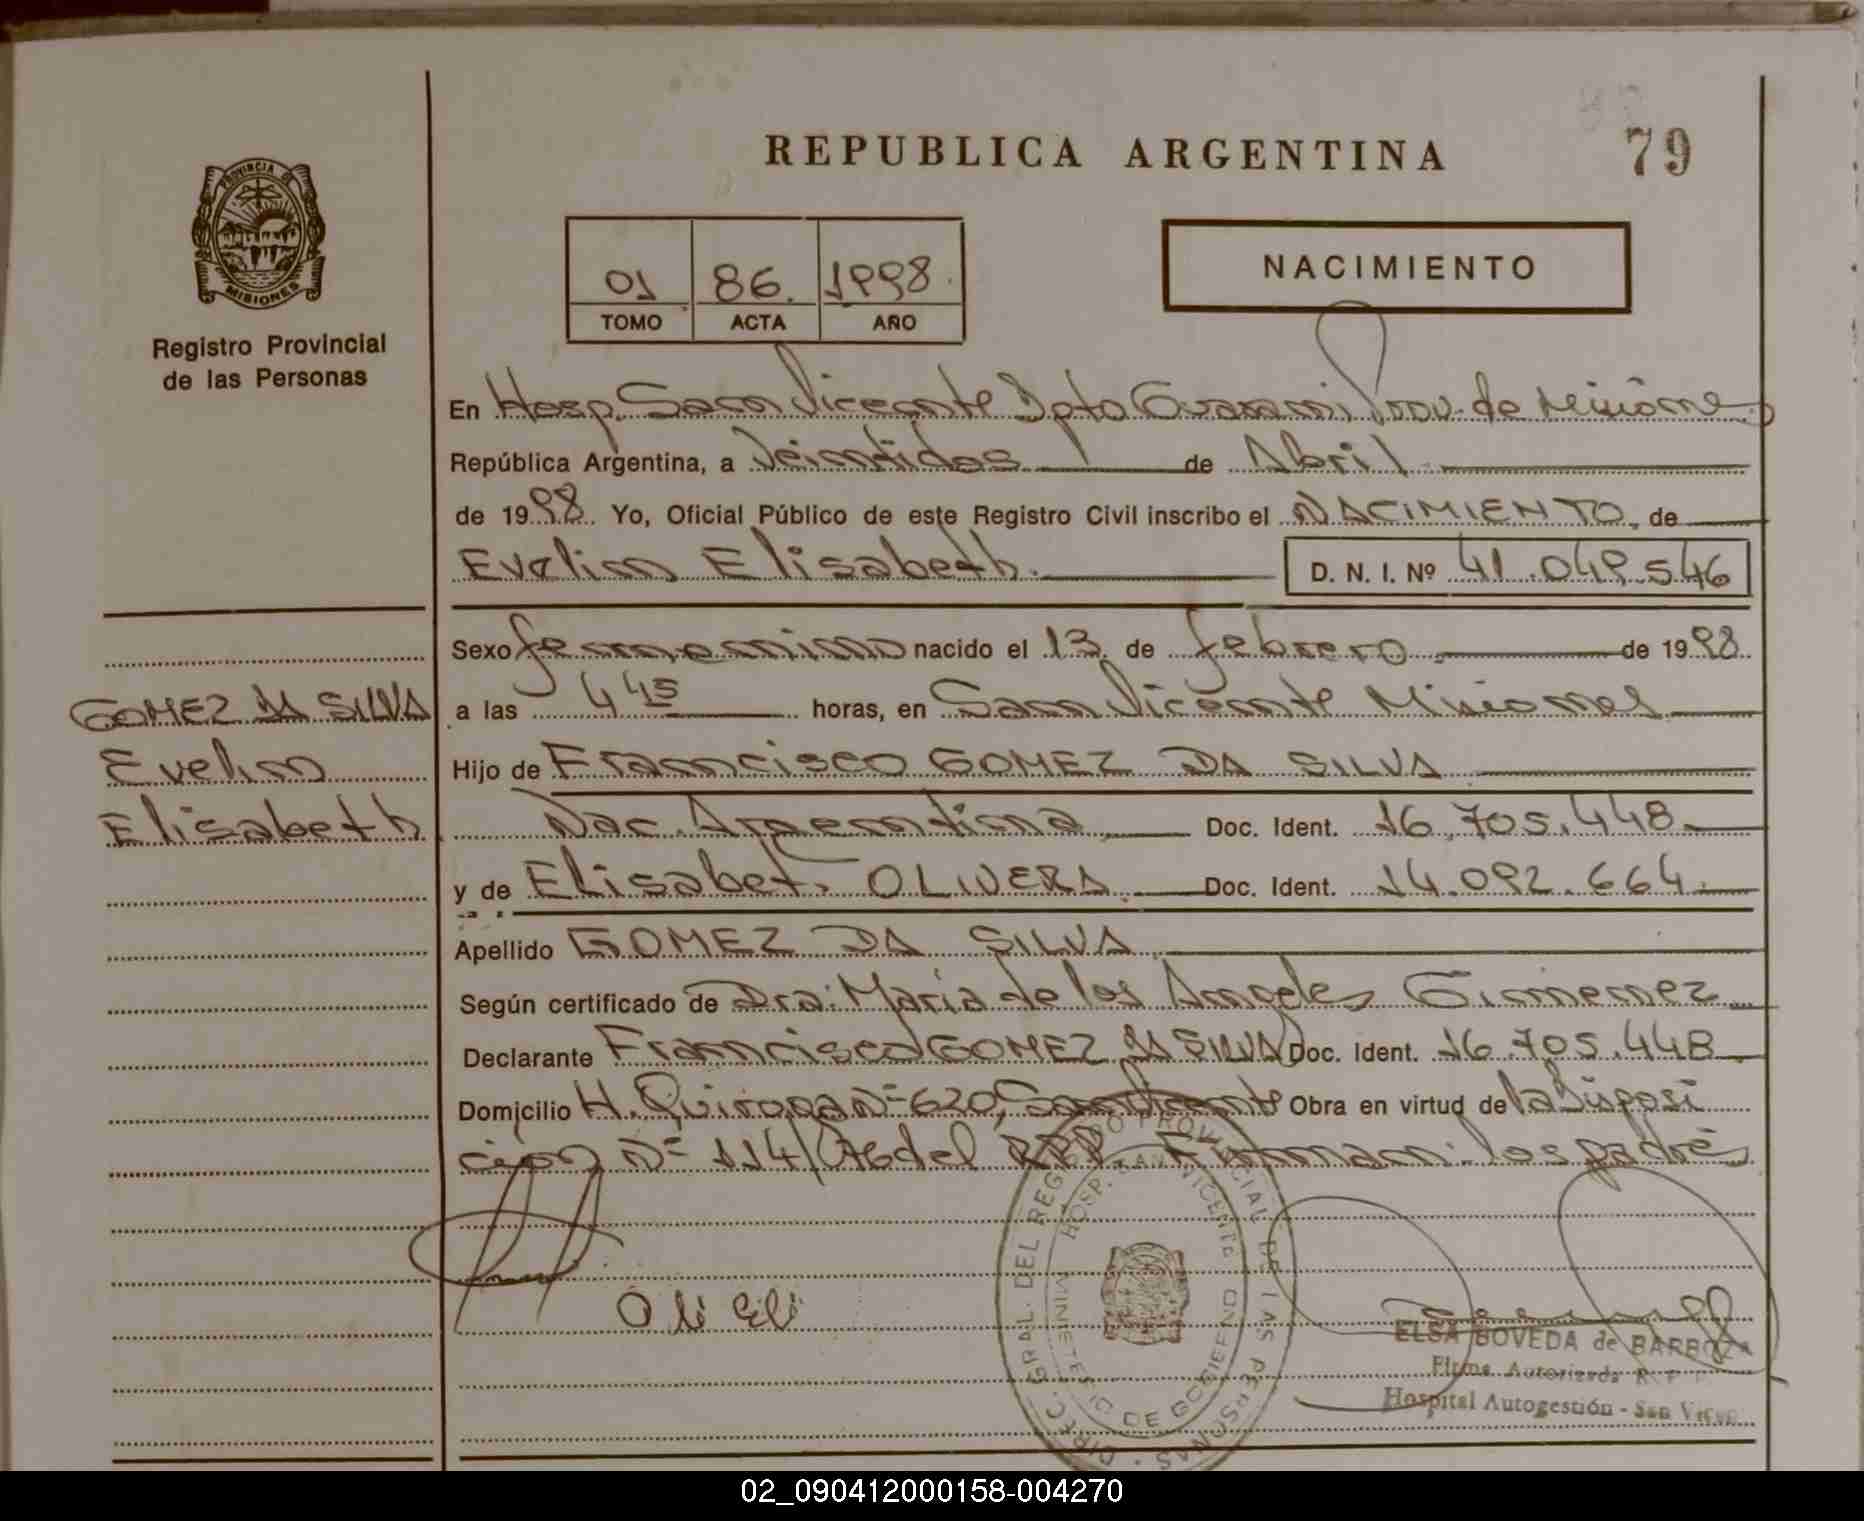 79
REPUBLICA ARGENTINA
PROVINCIA DE
MISIONES
Registro Provincial
de las Personas
01 86. 1998.
TOMO ACTA AÑO
NACIMIENTO
En Hosp. San Vicente Dpto Guarani Prov. de Misiones
República Argentina, a Veintidos de Abril
de 1998. Yo, Oficial Público de este Registro Civil inscribo el NACIMIENTO, de
Evelin Elisabeth. D. N. I. Nº 41.049.546
Sexo femenino nacido el 13 de febrero de 1998.
a las 4 45 horas, en San Vicente Misiones
Hijo de Francisco GOMEZ DA SILVA
Nac. Argentina Doc. Ident. 16.705.448
y de Elisabet OLIVERA Doc. Ident. 14.092.664.
Apellido GOMEZ DA SILVA
Según certificado de Dra: Maria de los Angeles Gimenez
Declarante Francisco GOMEZ DA SILVA Doc. Ident. 16.705.448
Domicilio H. Quiroga Nº 620, San Vicente Obra en virtud de la Disposi
cion Nº 114/96 del RPP. Firman: los padres
GOMEZ DA SILVA
Evelin
Elisabeth
Oli Eli
DIREC. GRAL. DEL REGISTRO PROVINCIAL DE LAS PERSONAS
HOSP. SAN VICENTE
MINISTERIO DE GOBIERNO
ELSA BOVEDA de BARBOZA
Firma Autorizada R. P. P.
Hospital Autogestión - San Vicen
02_090412000158-004270